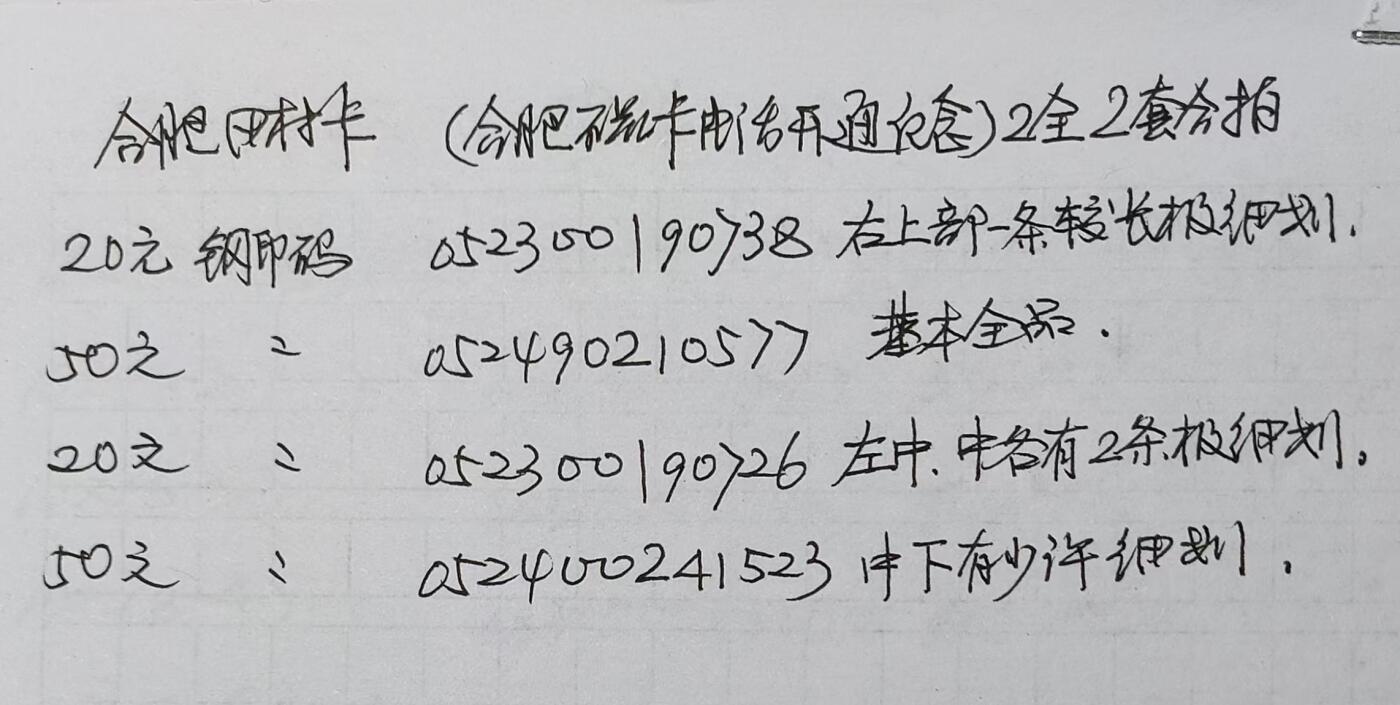 合肥田村卡 (合肥磁卡电话开通纪念)2全2套合拍
20元 钢印码 052300190738 右上部一条较长极细划.
50元 〃 052490210577 基本全品.
20元 〃 052300190726 左中、中各有2条极细划。
50元 〃 052400241523 中下有少许细划.